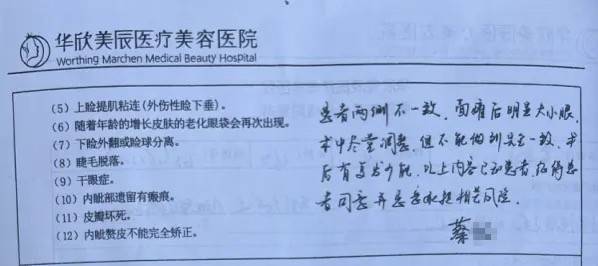 华欣美辰医疗美容医院
Worthing Marchen Medical Beauty Hospital
（5）上睑提肌粘连（外伤性睑下垂）。
（6）随着年龄的增长皮肤的老化眼袋会再次出现。
（7）下睑外翻或睑球分离。
（8）睫毛脱落。
（9）干眼症。
（10）内眦部遗留有瘢痕。
（11）皮瓣坏死。
（12）内眦赘皮不能完全矫正。
患者两侧不一致，面瘫后明显大小眼，
术中尽量调整，但不能做到完全一致，术
后有复发可能，以上内容已和患者
者同意并愿意承担相关风险。
蔡